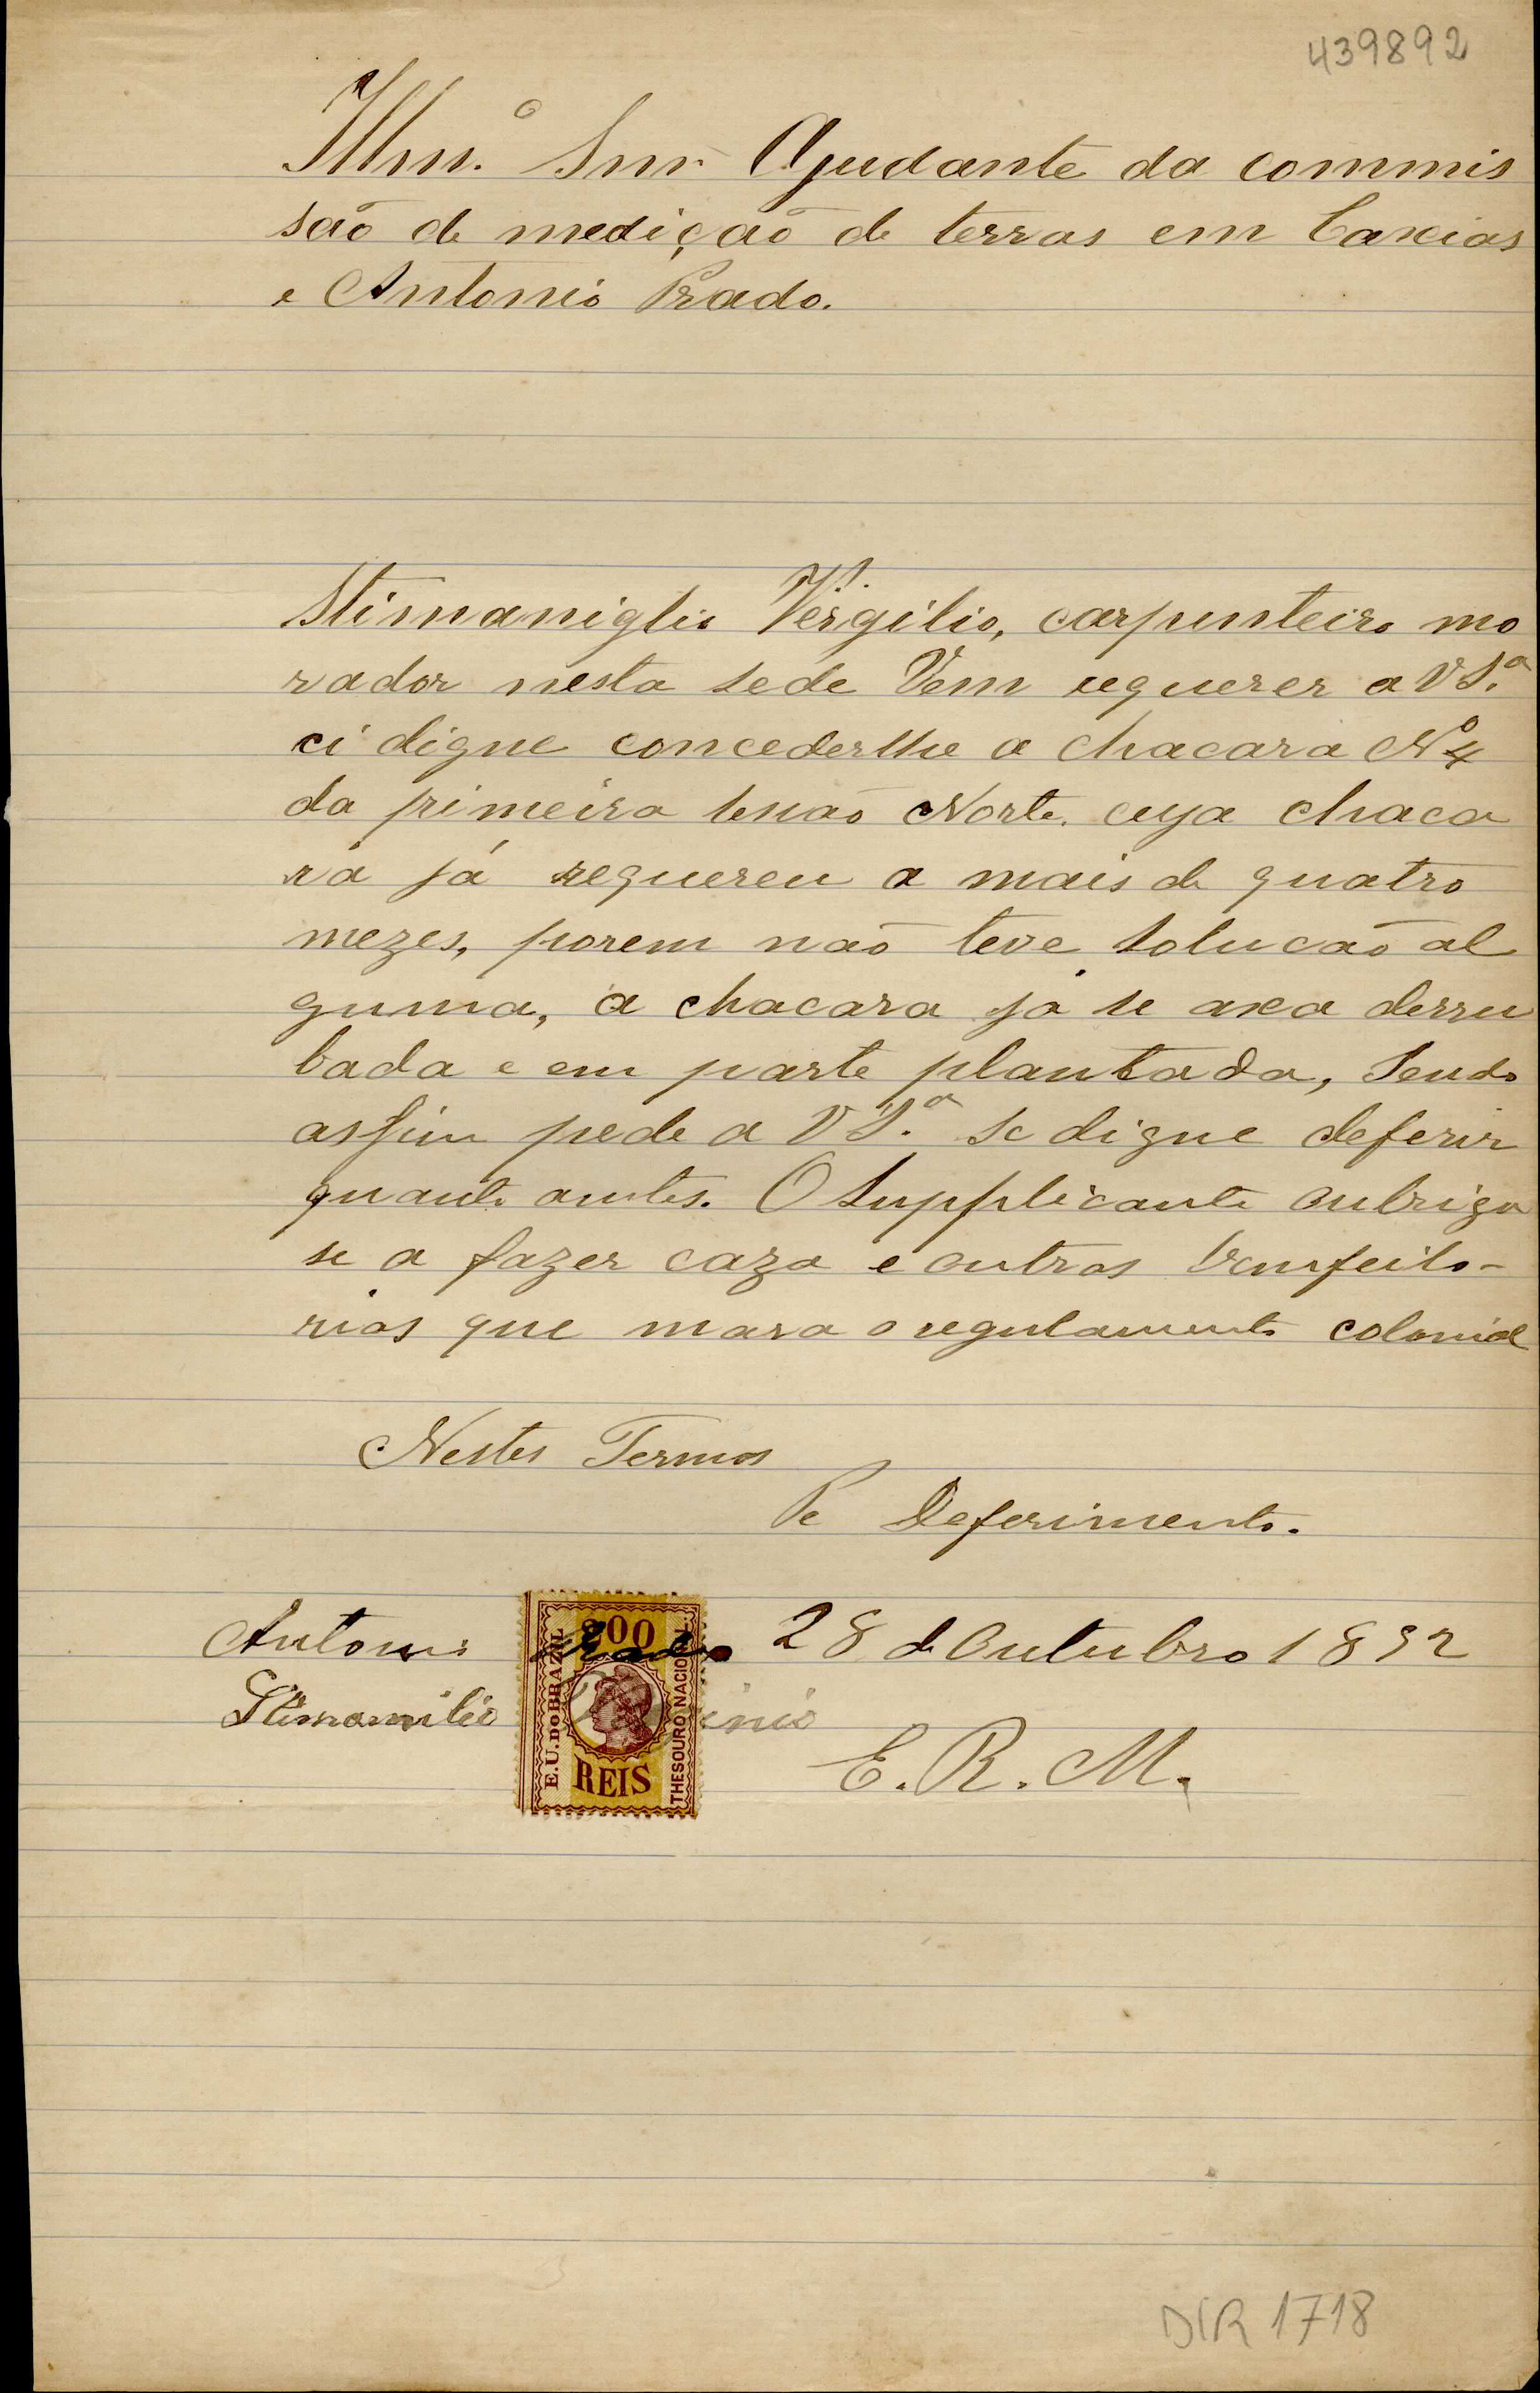 439892
Illm.º Snr Ajudante da commis
são de medição de terras em Caxias
e Antonio Prado.
Stimaniglio Vergilio, carpenteiro mo
rador nesta sede Vem requerer a V S.ª
ci digne concederlhe a chacara Nº 4
da primeira secão Norte. cuja chaca
ra já requereu a mais de quatro
mezes, porem não teve solucão al
guma, a chacara já se axa derru
bada e em parte plantada, Sendo
assim pede a V S.ª se digne deferir
quante antes. O Supplicante outriga
se a fazer caza e outras bemfeito-
rias que mara o regulamento colonial
Nestes Termos
Pe Deferimento.
Antonio Prado 28 de Outubro 1892
Stimamilio
E. R. M.
200
REIS
E.U. DO BRAZIL
THESOURO NACIONAL
DIR 1718